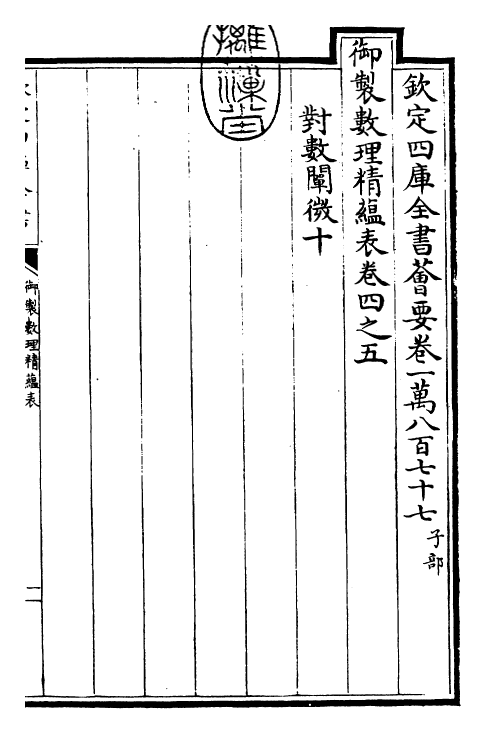 欽定四庫全書薈要卷一萬八百七十七 子部
御製數理精蘊表卷四之五
對數闡微十
摛藻堂
御製數理精蘊表